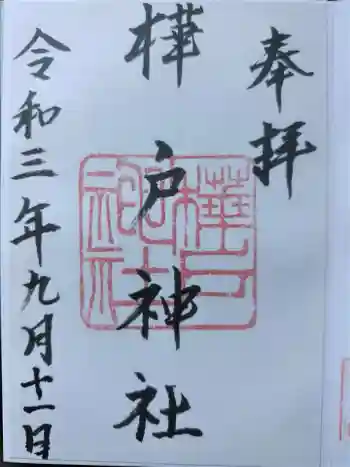 奉拝
樺戸神社
樺戸神社
令和三年九月十一日